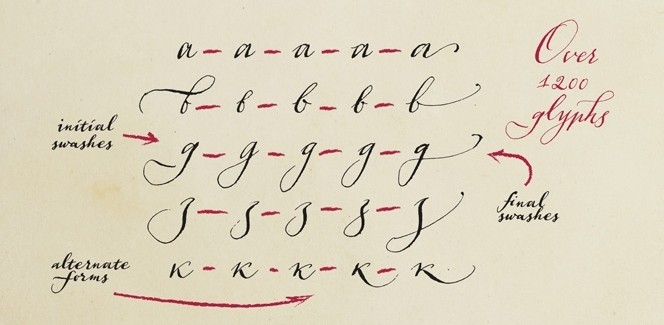 а – а – а – а – а
в – в – в – в – в
д – д – д – д – д
з – з – з – з – з
к – к – к – к – к
initial
swashes
alternate
forms
Over
1200
glyphs
final
swashes